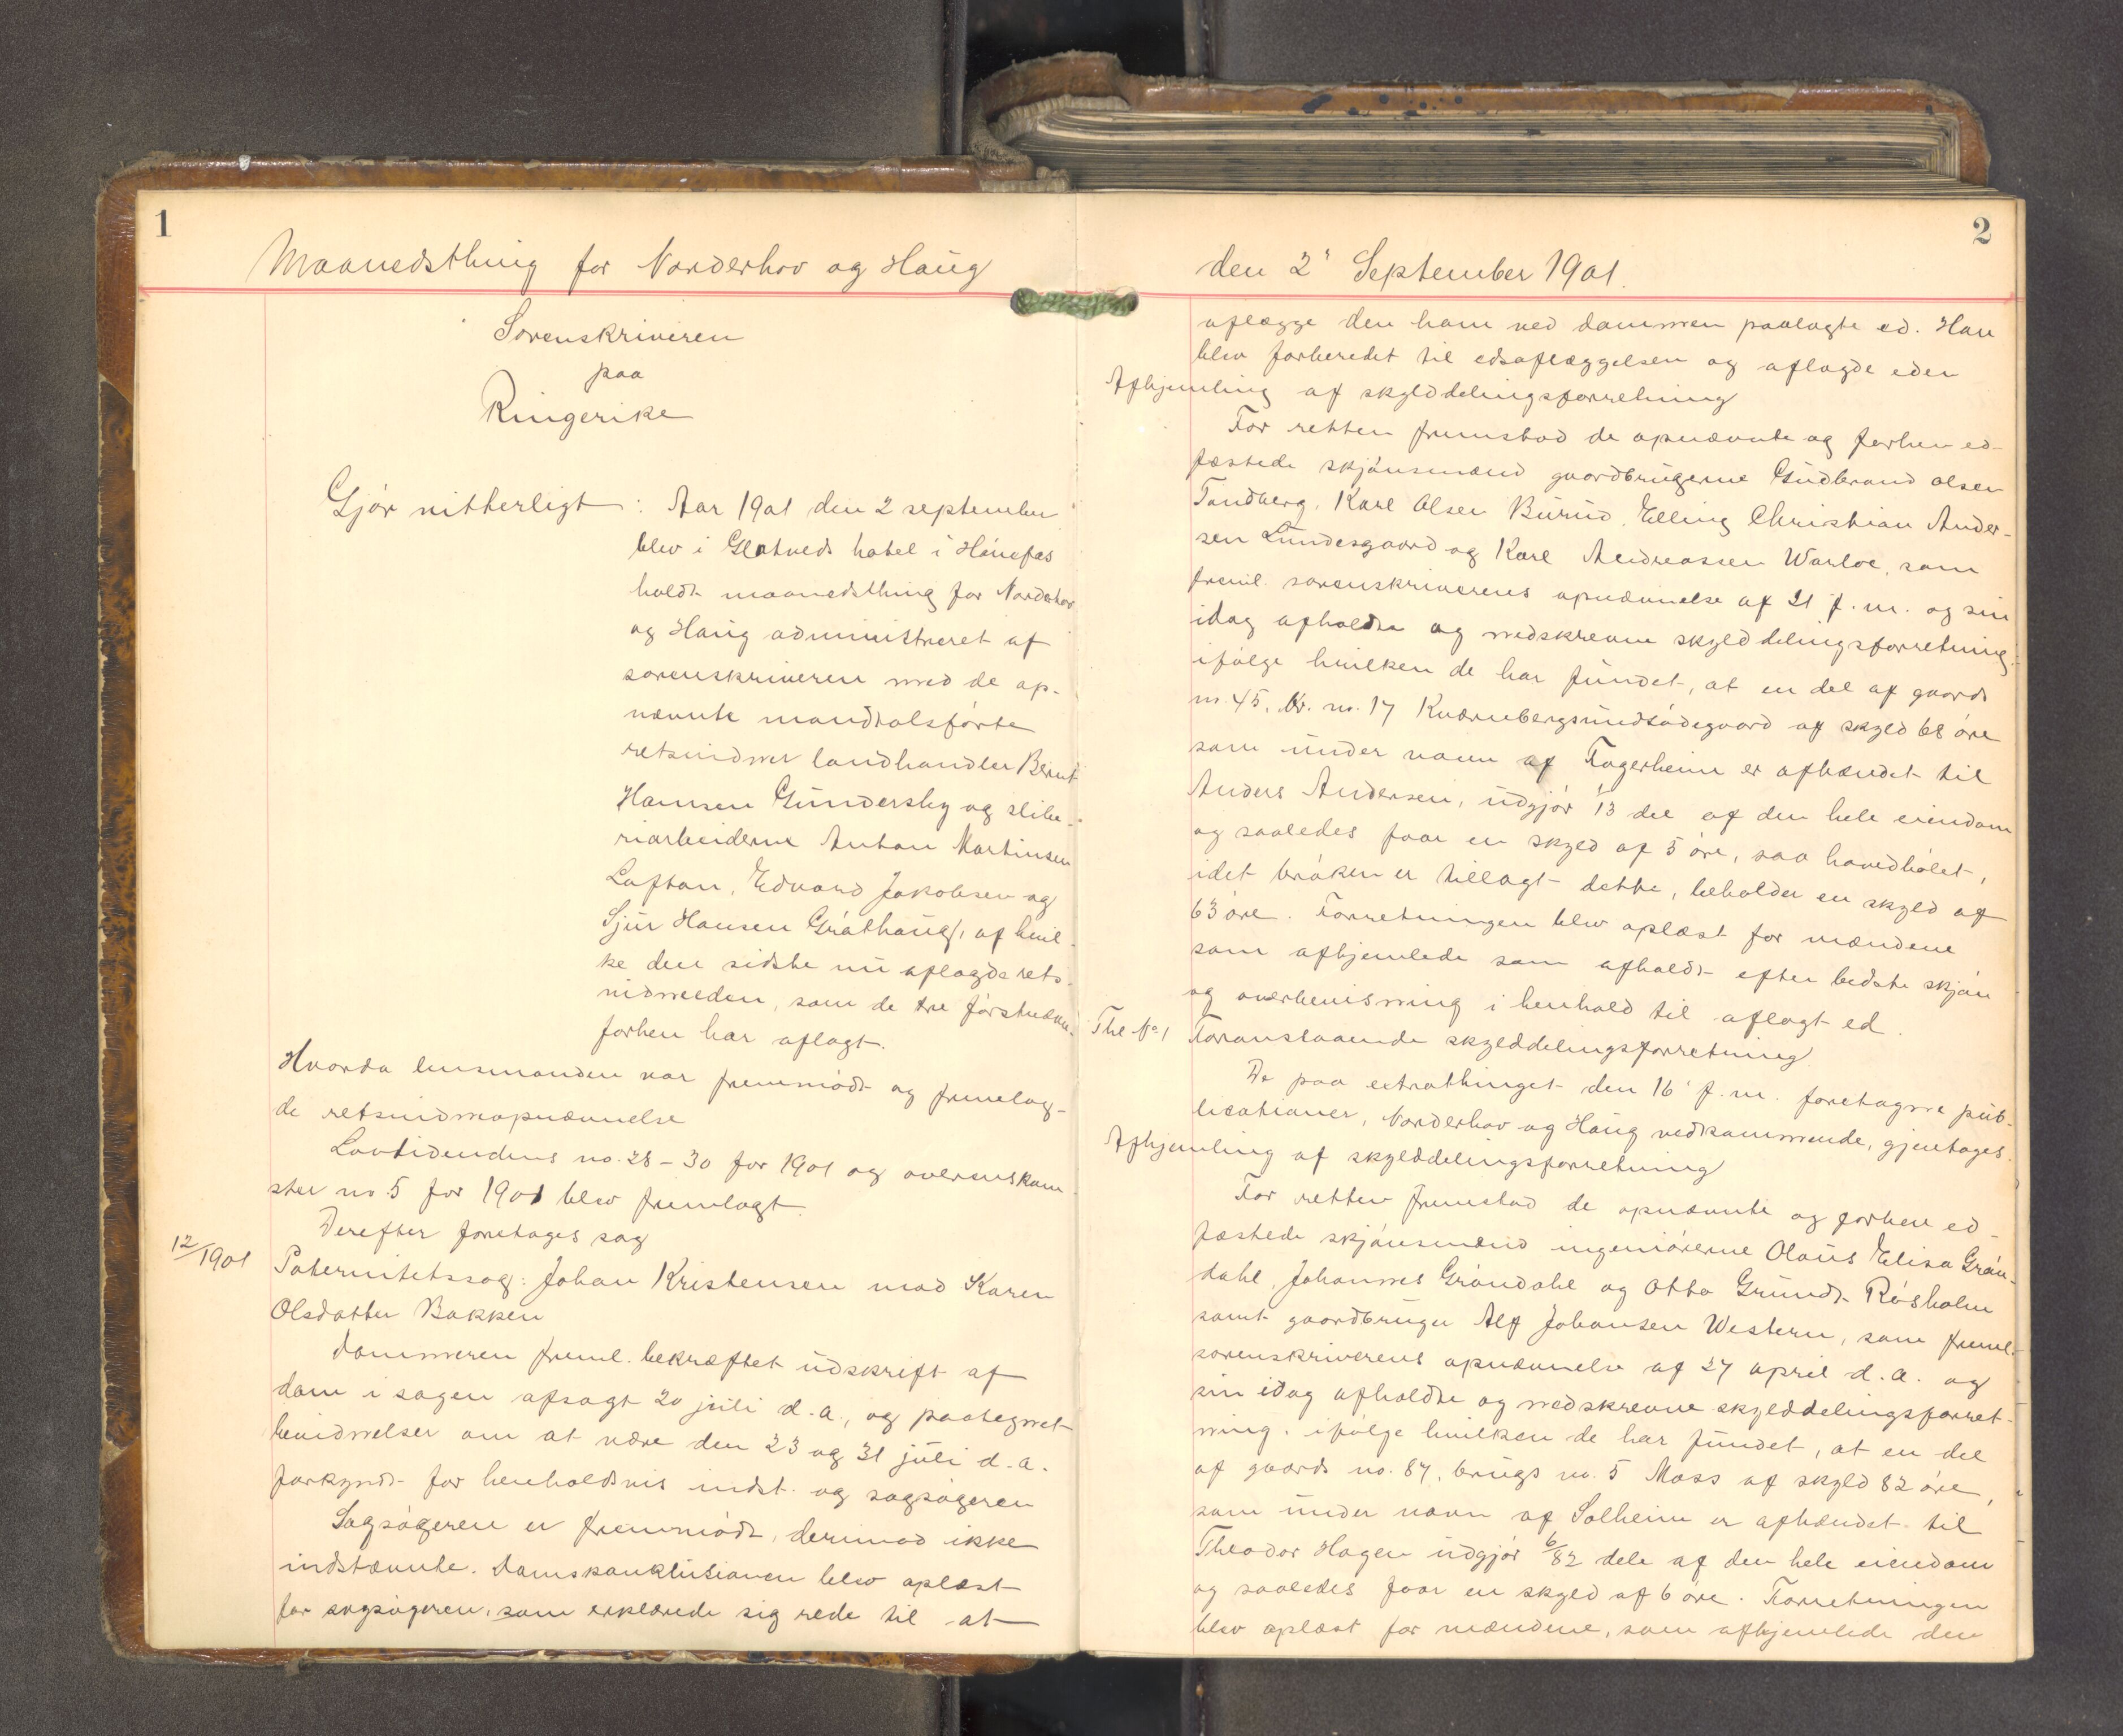 1
Maanedsthing for Norderhov og Haug
Sorenskriveren
paa
Ringerike
Gjør vitterligt: Aar 1901 den 2 september
blev i Glatveds hotel i Hønefos
holdt maanedsthing for Norderhov
og Haug administreret af
sorenskriveren med de op-
nævnte mandtalsførte
retsvidner landhandler Bernt
Hansen Gundersby og slibe-
riarbeiderne Anton Martinsen
Loftan, Edvard Jakobsen og
Sjur Hansen Gråthaug, af hvil-
ke den sidste nu aflagde rets-
vidneeden, som de tre førstnævn-
forhen har aflagt.
Hvorda lensmanden var fremmødt og fremlag-
de retsvidneopnævnelse
Lovtidendens no. 28-30 for 1901 og overenskom
ster no 5 for 1901 blev fremlagt.
Derefter foretages sag
12/1901 Paternitetssag: Johan Kristensen mod Karen
Olsdatter Bakken
Dommeren freml. bekræftet udskrift af
dom i sagen afsagt 20 juli d.a., og paategnet
bevidnelser om at være den 23 og 31 juli d.a.
forkyndt for henholdsvis indst. og sagsøgeren
Sagsøgeren er fremmødt, derimod ikke
indstævnte. Domskonklusionen blev oplæst
for sagsøgeren, som erklærede sig rede til at
2
den 2' September 1901.
aflægge den ham ved dommen paalagte ed. Han
blev forberedet til edsaflæggelsen og aflagde eden
Afhjemling af skylddelingsforretning
For retten fremstod de opnævnte og forhen ed-
fæstede skjønsmænd gaardbrugerne Gudbrand Olsen
Tandberg, Karl Olsen Burud, Elling Christian Ander-
sen Lundesgaard og Karl Andreassen Warloe, som
freml. sorenskriverens opnævnelse af 21 f.m. og sin
idag afholdte og nedskrevne skylddelingsforretning
ifølge hvilken de har fundet, at en del af gaards
no. 45, br. no. 17 Kværnbergsundsødegaard af skyld 68 øre
som under navn af Fagerheim er afhændet til
Anders Andersen, udgjør 1/13 del af den hele eiendom
og saaledes faar en skyld af 5 øre, saa hovedbølet,
idet brøken er tillagt dette, beholder en skyld af
63 øre. Forretningen blev oplæst for mændene
som afhjemlede som afholdt efter bedste skjøn
og overbevisning i henhold til aflagt ed.
Thl No 1 Foranstaaende skylddelingsforretning
De paa extrathinget den 16' f.m. foretagne pub-
licationer, Norderhov og Haug vedkommende, gjentages.
Afhjemling af skylddelingsforretning
For retten fremstod de opnævnte og forhen ed-
fæstede skjønsmænd ingeniørerne Olaus Elisa Grøn-
dahl, Johannes Grøndahl og Otto Grundt Røsholm
samt gaardbruger Alf Johansen Western, som freml.
sorenskriverens opnævnelse af 27 april d.a. og
sin idag afholdte og nedskrevne skylddelingsforret-
ning, ifølge hvilken de har fundet, at en del
af gaards no. 87, brugs no. 5 Moss af skyld 82 øre,
som under navn af Solheim er afhændet til
Theodor Hagen udgjør 6/82 dele af den hele eiendom
og saaledes faar en skyld af 6 øre. Forretningen
blev oplæst for mændene, som afhjemlede den